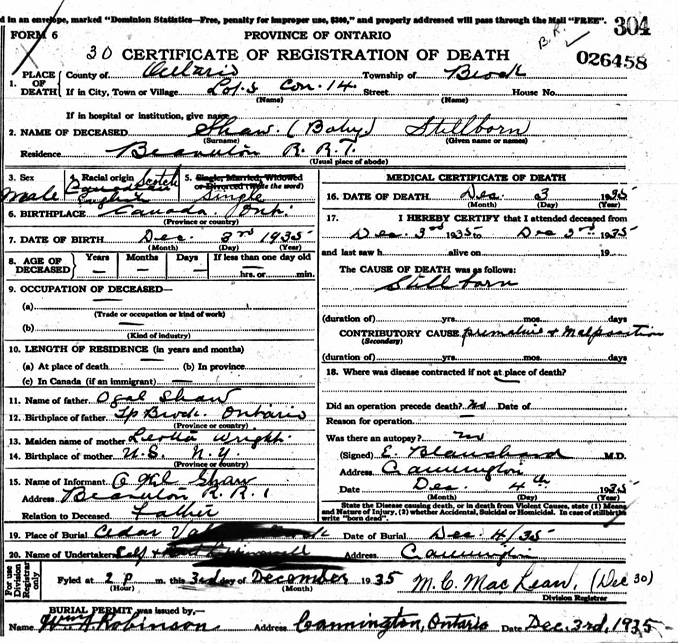 d in an envelope, marked "Dominion Statistics—Free, penalty for improper use, $300," and properly addressed will pass through the Mail "FREE". 304
FORM 6 PROVINCE OF ONTARIO B.R.
30 CERTIFICATE OF REGISTRATION OF DEATH 026458
1. PLACE OF DEATH County of Ontario Township of Brock
If in City, Town or Village Lot 5 Con. 14. Street House No.
(Name) (Name)
If in hospital or institution, give name
2. NAME OF DECEASED Shaw (Baby) Stillborn
(Surname) (Given name or names)
Residence Beaverton R. R. 1.
(Usual place of abode)
3. Sex Male 4. Racial origin Scotch Canadian English 5. Single, Married, Widowed or Divorced (Write the word) Single
6. BIRTHPLACE Canada Ont.
(Province or country)
7. DATE OF BIRTH Dec. 3rd 1935
(Month) (Day) (Year)
8. AGE OF DECEASED Years Months Days If less than one day old
— — — hrs. or min.
9. OCCUPATION OF DECEASED—
(a) —
(Trade or occupation or kind of work)
(b) —
(Kind of industry)
10. LENGTH OF RESIDENCE (in years and months)
(a) At place of death (b) In province
(c) In Canada (if an immigrant) —
11. Name of father Shaw
12. Birthplace of father Tp Brock Ontario
(Province or country)
13. Maiden name of mother Leotta Wright
14. Birthplace of mother U.S. N.Y.
(Province or country)
15. Name of Informant Shaw
Address Beaverton R.R.1
Relation to Deceased Father
MEDICAL CERTIFICATE OF DEATH
16. DATE OF DEATH Dec. 3 1935
(Month) (Day) (Year)
17. I HEREBY CERTIFY that I attended deceased from
Dec. 3rd 1935 to Dec 3rd 1935
and last saw h alive on 19
The CAUSE OF DEATH was as follows:
Stillborn
(duration of) yrs. mos. days
CONTRIBUTORY CAUSE premature & Malposition
(Secondary)
(duration of) yrs. mos. days
18. Where was disease contracted if not at place of death?
Did an operation precede death? No Date of
Reason for operation
Was there an autopsy? no
(Signed) E. Blanchard M.D.
Address Cannington
Date Dec 4th 1935
(Month) (Day) (Year)
State the Disease causing death, or in death from Violent Causes, state (1) Means and Nature of Injury, (2) whether Accidental, Suicidal or Homicidal. In case of stillbirths write "born dead".
19. Place of Burial Cedar Date of Burial Dec. 4/35
20. Name of Undertaker Self Address Cannington
For use Division Registrar only
Fyled at 2 p m. this 3rd day of December 1935 M. C. MacLean, (Dec 30)
(Hour) (Month) Division Registrar
BURIAL PERMIT was issued by,—
Name Robinson Address Cannington, Ontario Date Dec. 3rd, 1935